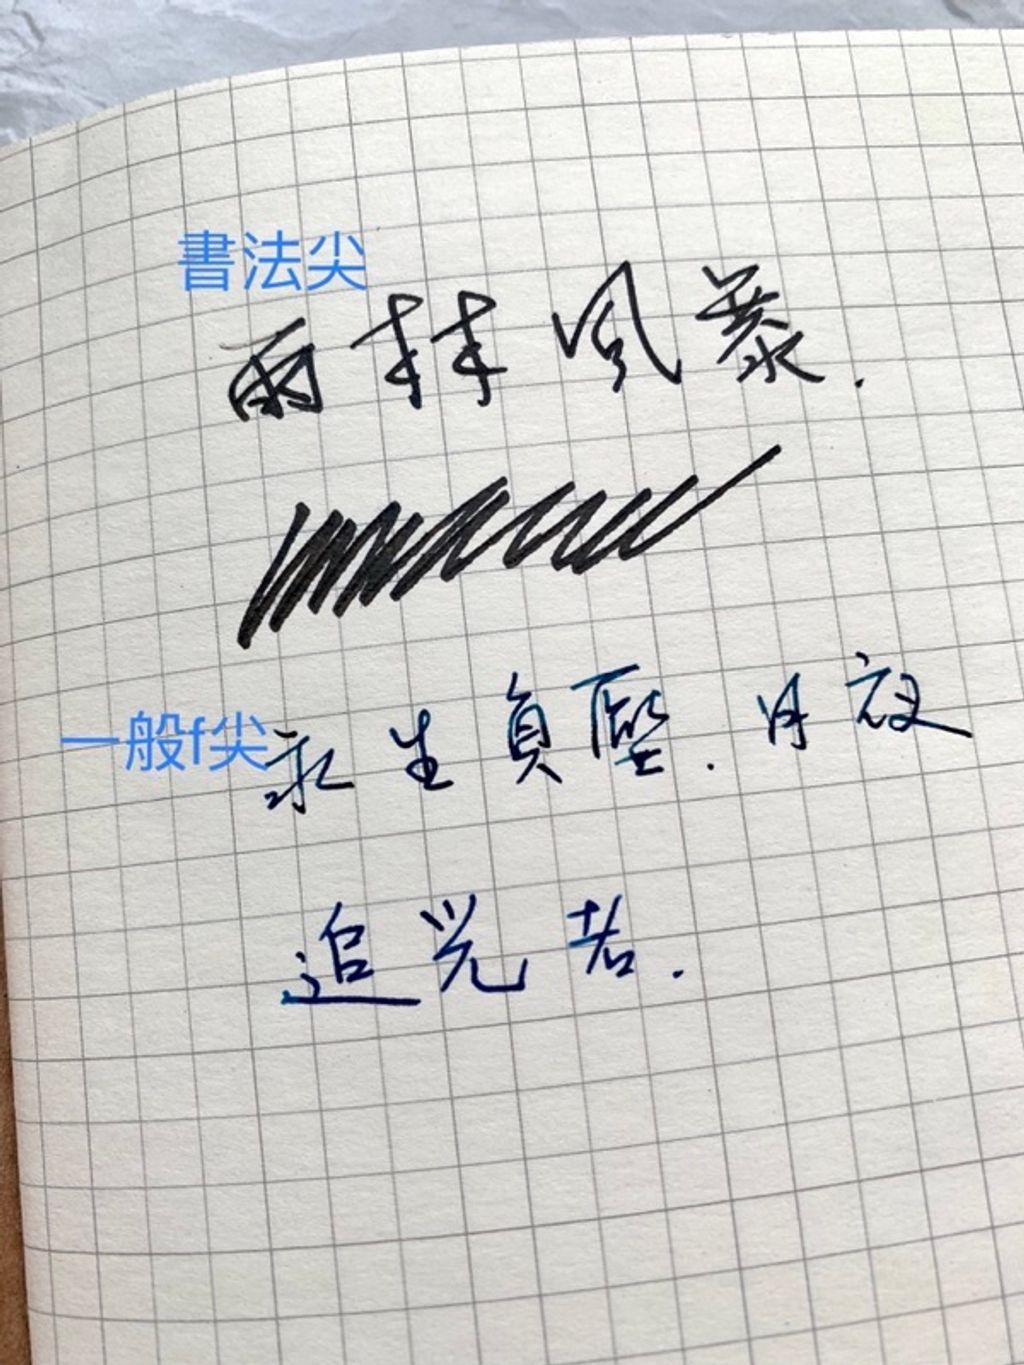 書法尖
雨林風暴.
一般f尖
永生負壓.月夜
追光者.